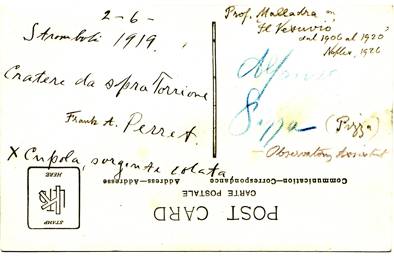 2-6-
Stromboli 1919.
Cratere da sopra Torrione
Frank A. Perret.
X Cupola, sorgente colata
Prof. Malladra in
Il Vesuvio
dal 1906 al 1920
Naples, 1926
Alfonso
Pizza
(Pizza)
- Observatory Assistant
Communication—Correspondance
Address—Adresse
CARTE POSTALE
POST CARD
STAMP
HERE